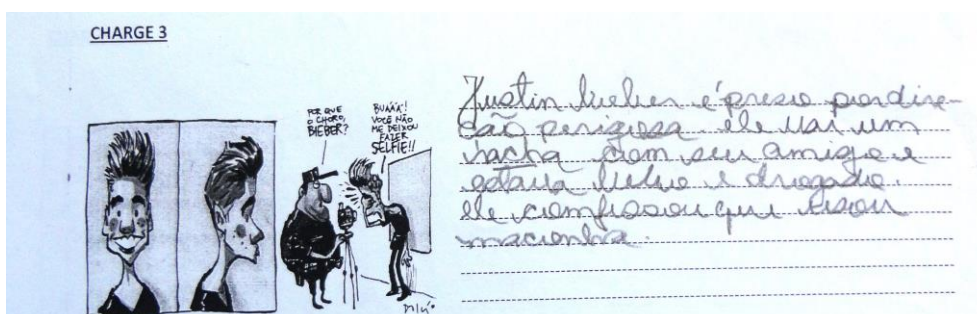 CHARGE 3
POR QUE
O CHORO,
BIEBER?
BUÁÁÁ!
VOCÊ NÃO
ME DEIXOU
FAZER
SELFIE!!
Justin bieber é preso por dire-
ção perigosa ele vai um
racha com seu amigo e
estava bebo e drogado.
ele comfessou que usou
maconha.